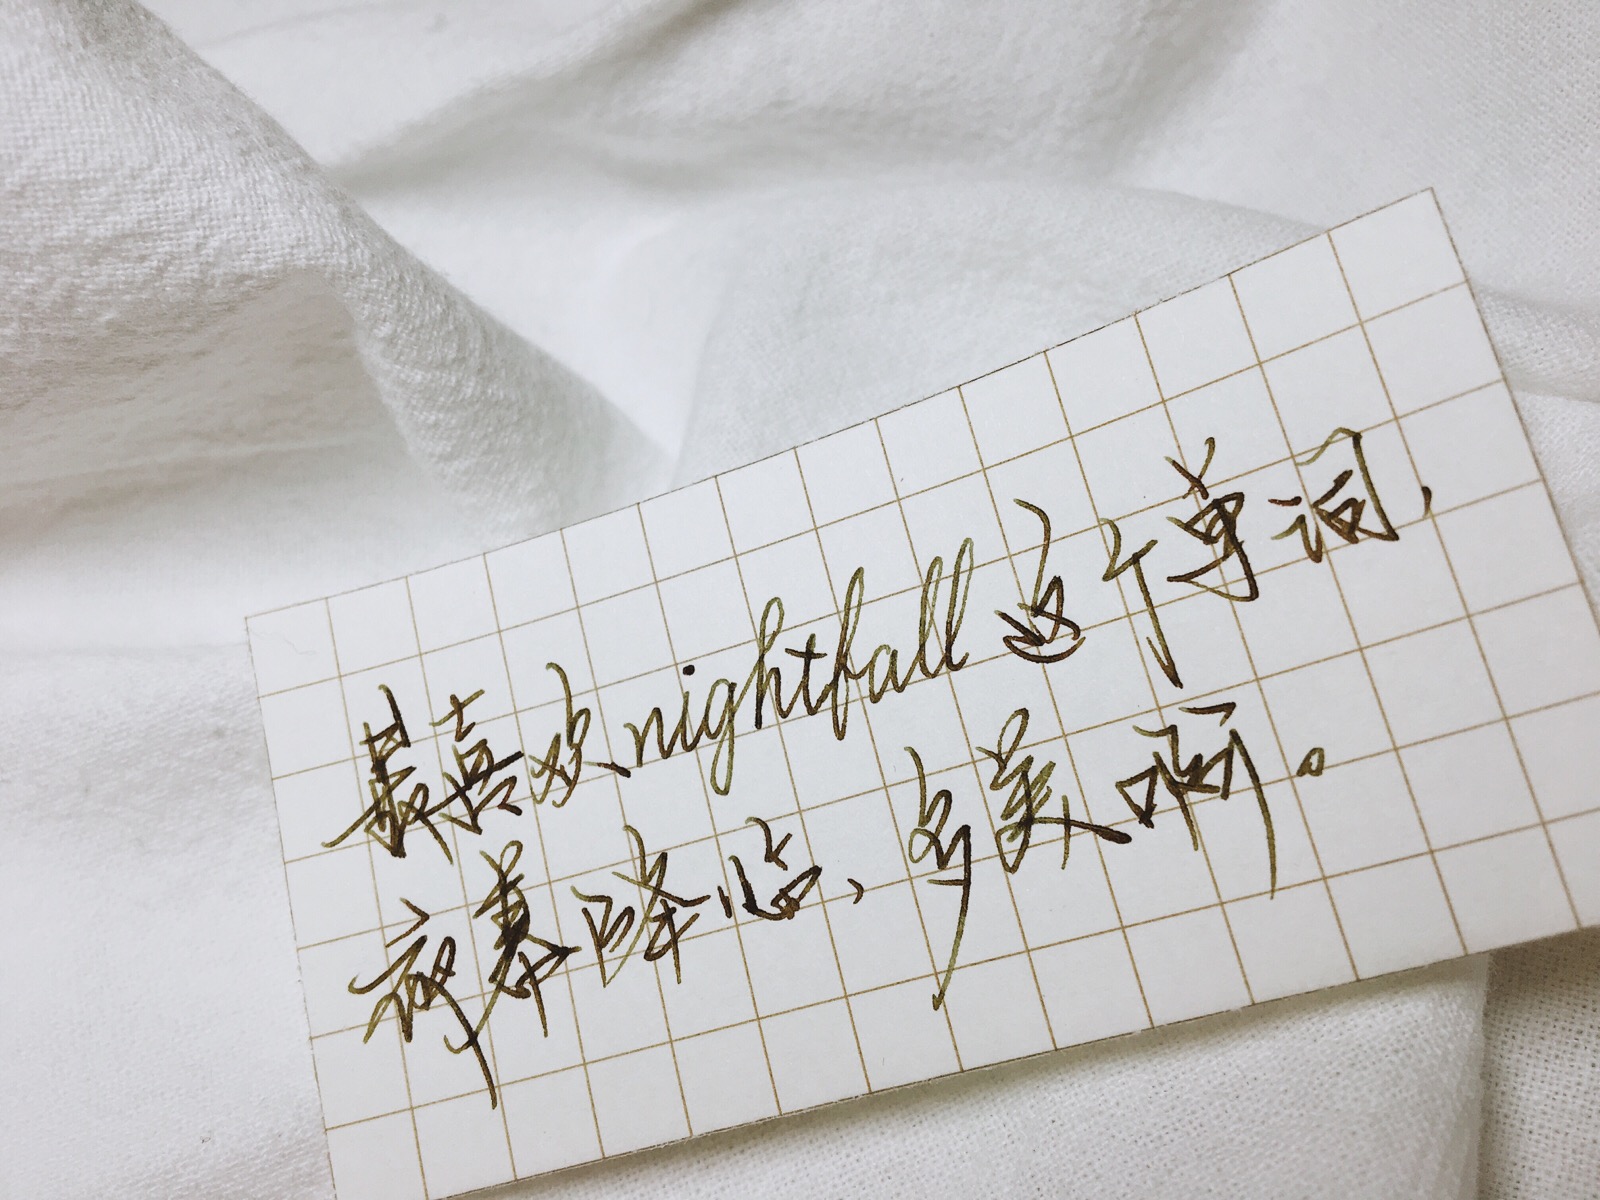 最喜欢nightfall这个单词，
夜幕降临、多美啊。